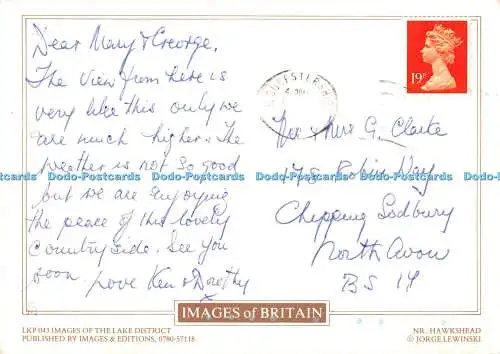 Dear Mary & George,
The view from here is
very like this only we
are much higher. The
weather is not so good
but we are enjoying
the peace of this lovely
Countryside. See you
soon. Love Ken & Dorothy
x
19P
Mr & Mrs G. Clarke
Robin Way
Chipping Sodbury
North Avon
BS 17
Dodo-Postcards Dodo-Postcards Dodo-Postcards Dodo-Postcards Dodo-Postcards
IMAGES of BRITAIN
LKP 043 IMAGES OF THE LAKE DISTRICT
PUBLISHED BY IMAGES & EDITIONS, 0780-57118
NR. HAWKSHEAD
© JORGE LEWINSKI